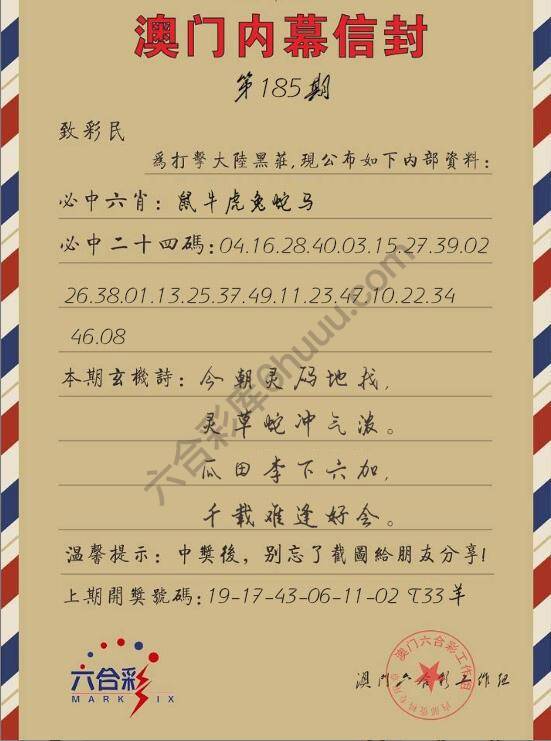 澳门内幕信封
第185期
致彩民
為打擊大陸黑莊,現公布如下内部資料:
必中六肖: 鼠牛虎兔蛇马
必中二十四碼:04.16.28.40.03.15.27.39.02
26.38.01.13.25.37.49.11.23.47.10.22.34
46.08
本期玄機詩: 今朝灵码地找,
灵草蛇冲气浓。
瓜田李下六加,
千载难逢好会。
温馨提示: 中獎後，别忘了截圖給朋友分享!
上期開獎號碼: 19-17-43-06-11-02 T33羊
六合彩
MARK SIX
澳门六合彩工作组
澳门六合彩工作组
六合彩库6huuu.com